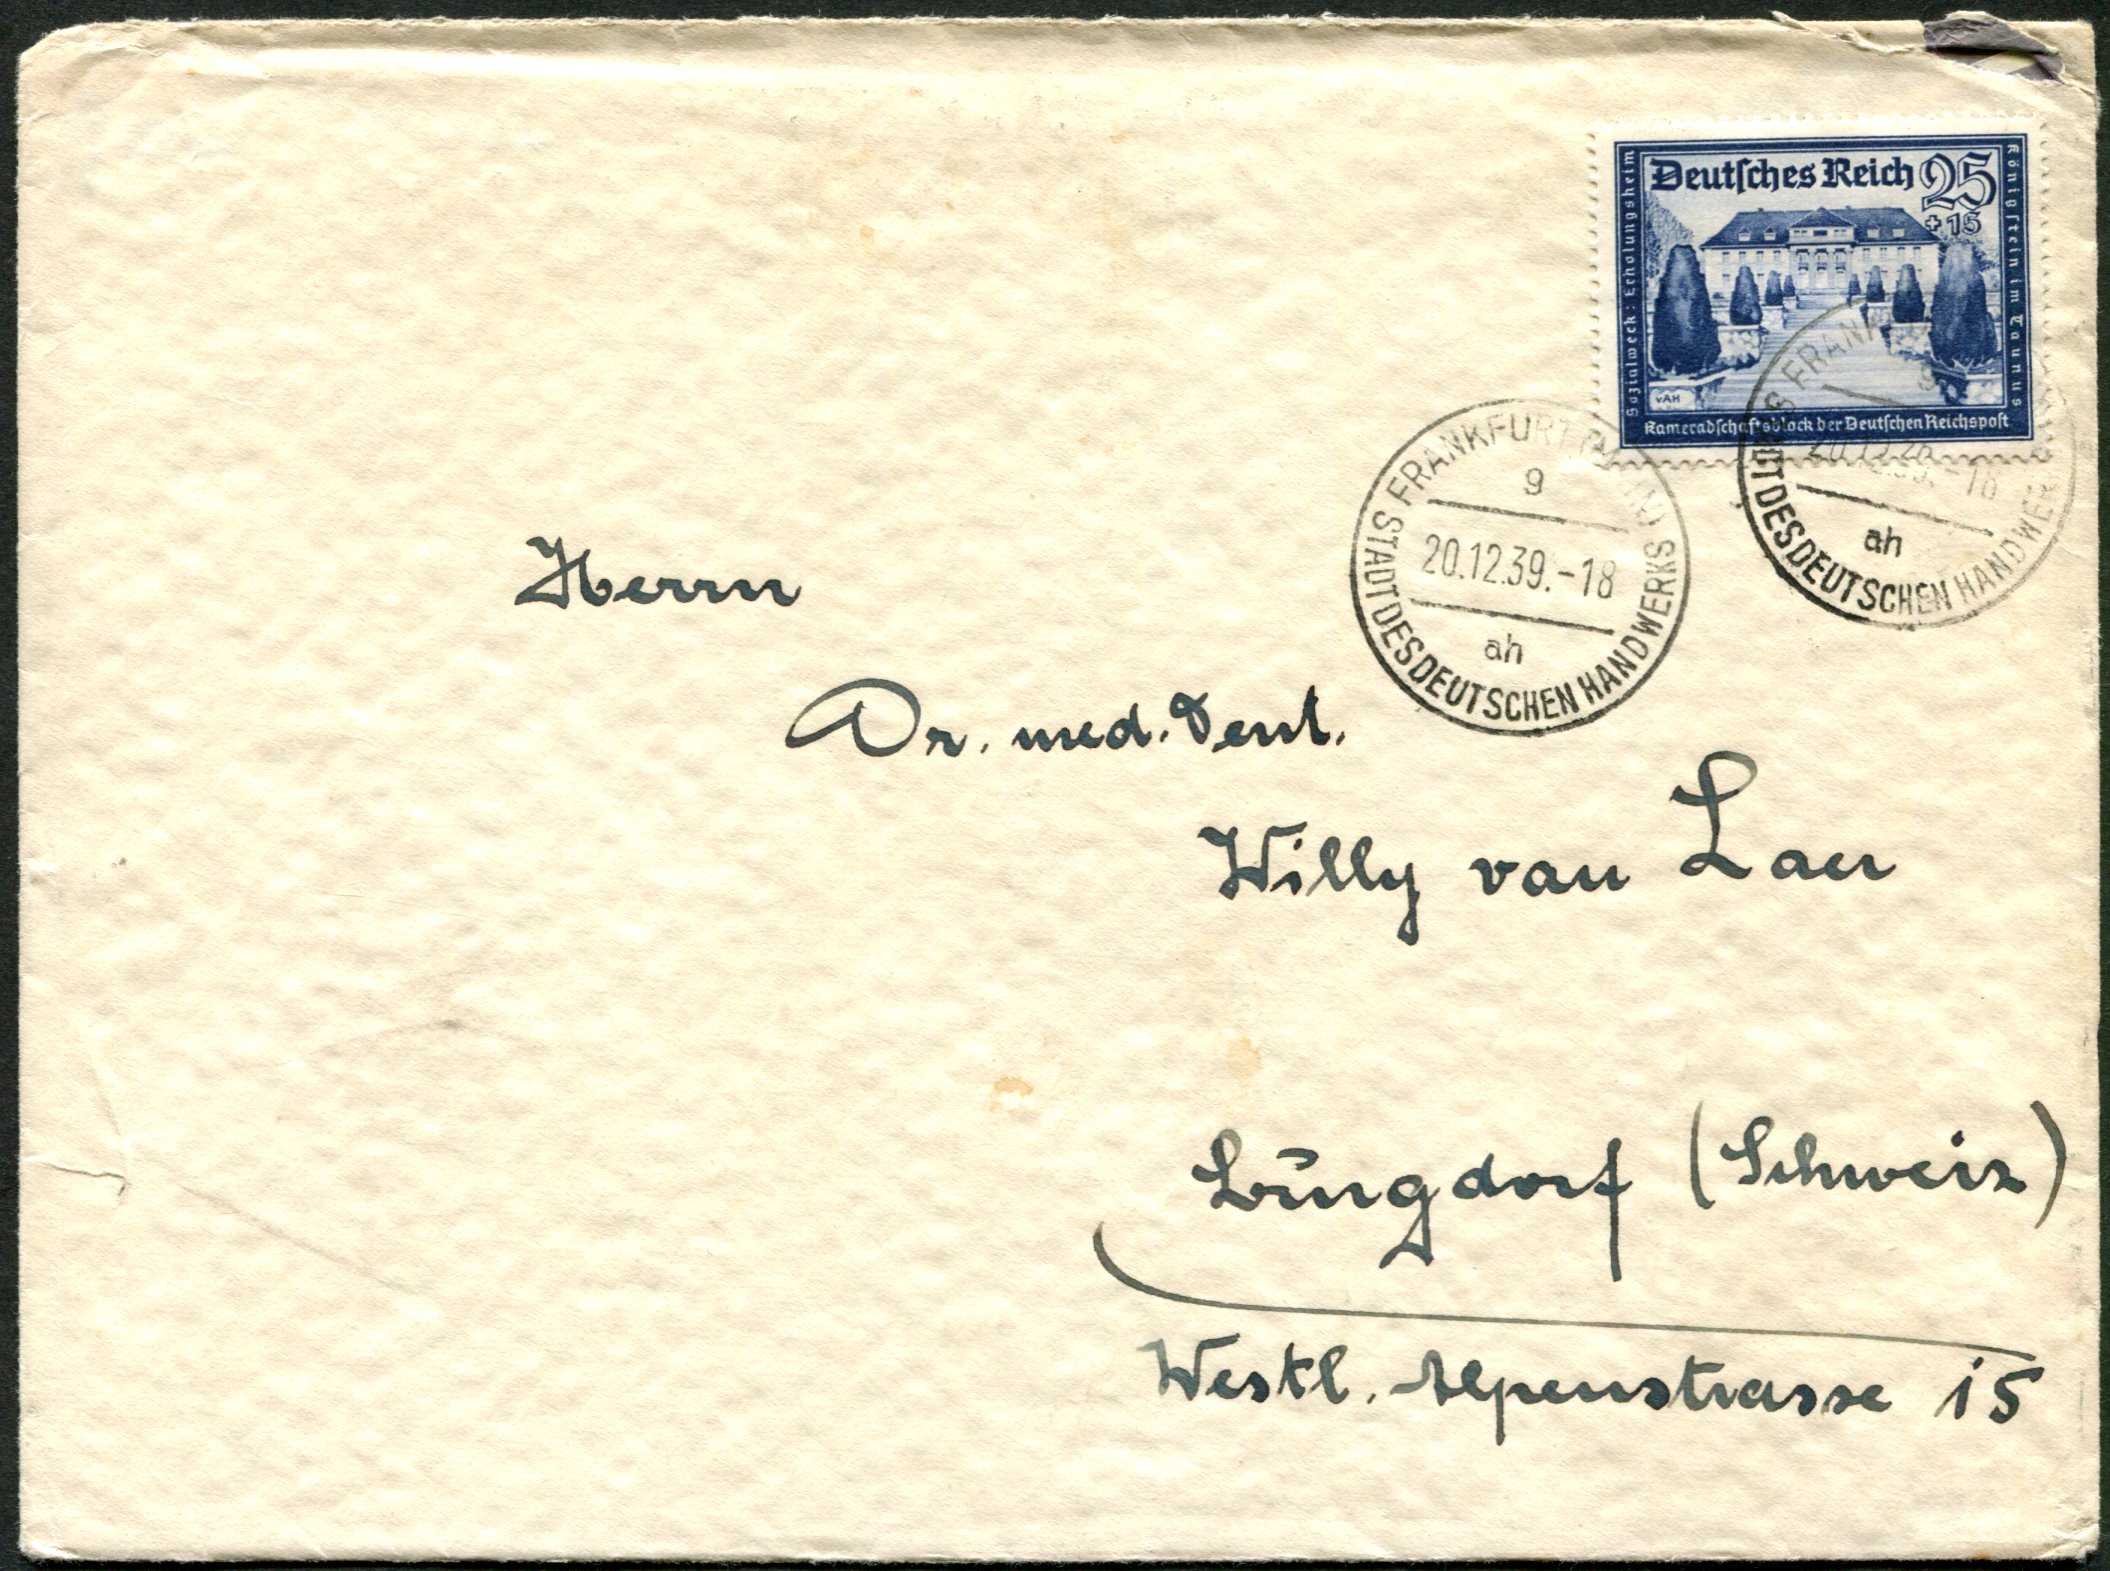 Deutsches Reich 25
+15
Sozialwerk: Erholungsheim
Königstein im Taunus
vAH
Kameradschaftsblock der Deutschen Reichspost
FRANKFURT (MAIN)
g
20.12.39.-18
ah
STADT DES DEUTSCHEN HANDWERKS
FRANK
g
20.12.39.-18
ah
STADT DES DEUTSCHEN HANDWER
Herrn
Dr. med. dent.
Willy van Laer
Büngdorf (Schweiz)
Westl. Alpenstrasse 15